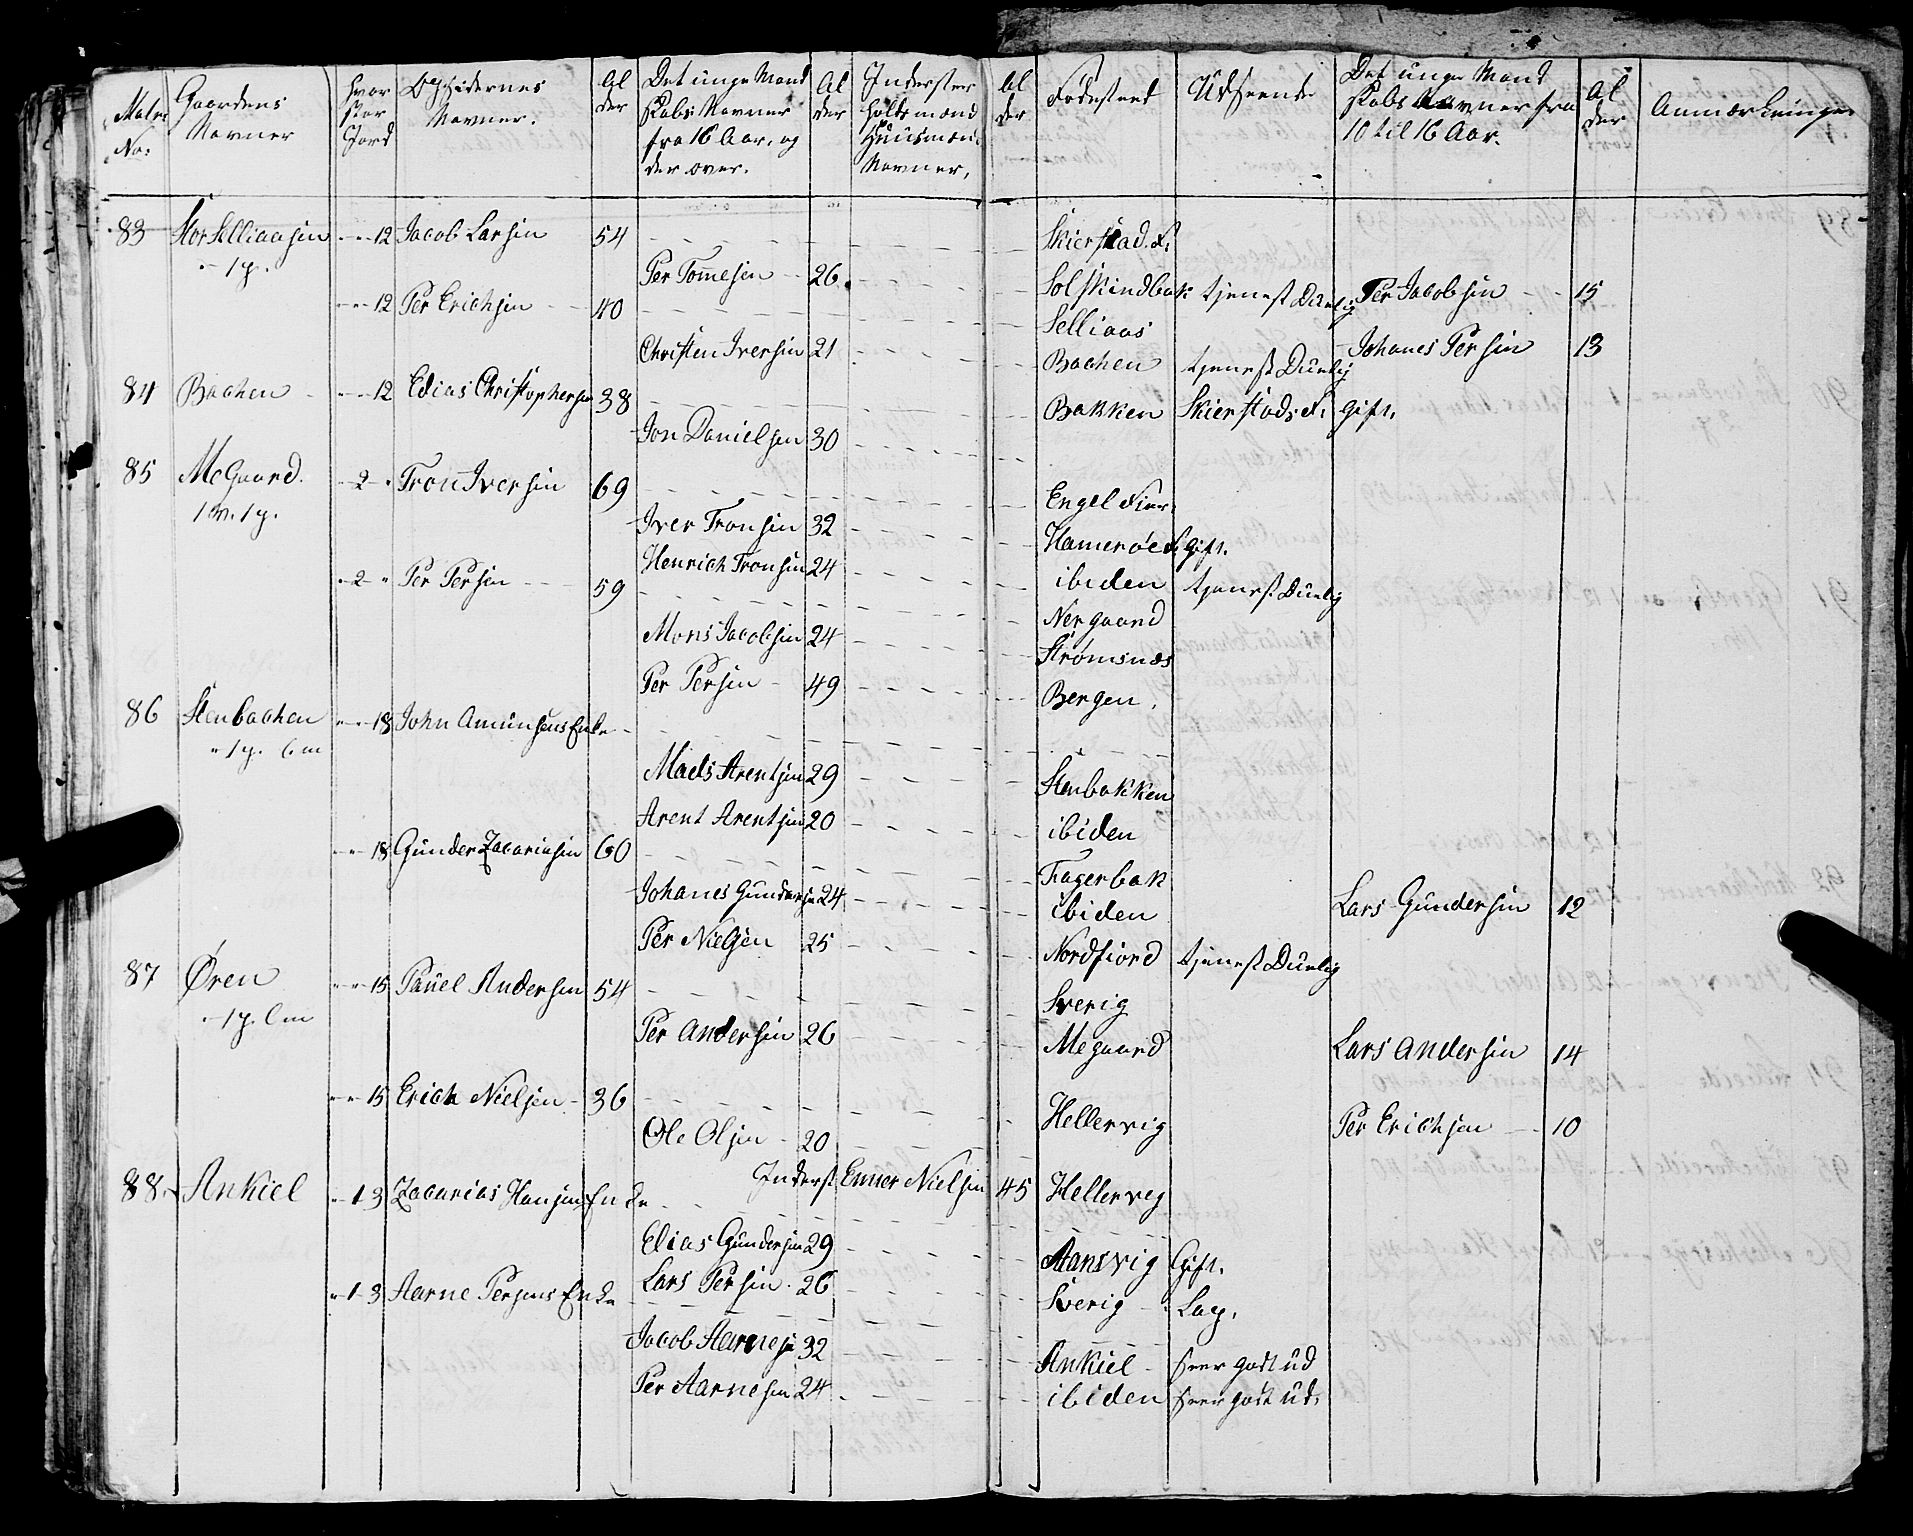 Matr: No: Gaardens Navner Hvor stor Jord Opsidernes Navner. Al der Det unge Mand skabs Navner fra 16 Aar, og der over. Al der Inderster Holdsmænd Huusmænd Navner, Al der Fødested Udseende Det unge Mand skabs Navner fra 10 til 16 Aar. Al der Anmærkninger
83 Stor Selliaasin - - 12 Jacob Larsin 54 Skierstad. F.
- 1 p. Per Tomesen 26. Solskindbak tjenest Duelig Per Jacobsin 15
- - 12 Per Erichsin 40 Selliaas
Christen Iversin 21 Bachen tjenest Duelig Johanes Persin 13
84 Bachen - - 12 Elias Christophersen 38 Bakken Skierstads F. Gift.
Jon Danielsen 30
85 MeGaard. - 2 - Tron Iversin 69 Engel Fier
1 W. 1 p. Iver Tronsin 32 Hamerøe F. Gift.
Henrich Tronsin 24 ibiden tjenest Duelig
- 2 - Per Persin 59 Nergaard
Mons Jacobsin 24 Strømsnæs
Per Persin 49 Bergen.
86 Stenbachen - - 18 John Amunsens Enke
- 1 p. 6 m Mads Arentsen 29 Stenbakken
Arent Arentsin 20 ibiden
- - 18 Gunder Zacariasin 60 Fagerbak
Johanes Gundersin 24 ibiden Lars Gundersin 12
Per Nielsen 25 Nordfiord tjenest Duelig
87 Øren - - 15 Pauel Andersen 54 Sverig
- 1 p. 6 m Per Andersin 26 Megaard Lars Andersin 14
- - 15 Erich Nielsen - 36 Hellervig Per Erichsen 10
Ole Olsen - 20
88. Ankiel - 1 3 Zacarias Hansens Enke Inderst Enner Nielsin 45 Hellerveg
Elias Gundersin 29 Aansvig Gift.
- 1 - 3 Aarne Persens Enke Lars Persin. 26 Sverig - Lap.
Jacob Aarnesen 32 Ankiel - seer godt ud
Per Aarnesen 24 ibiden seer godt ud.